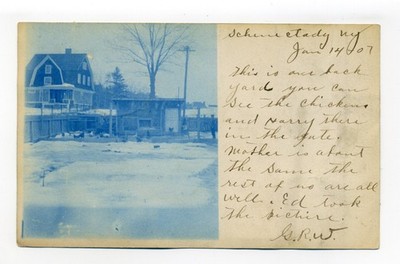 Schenectady Ny
Jan 14 07
This is our back
yard you can
see the chickens
and Harry there
in the gate.
Mother is about
the same the
rest of us are all
well. Ed took
the picture.
G.R.W.